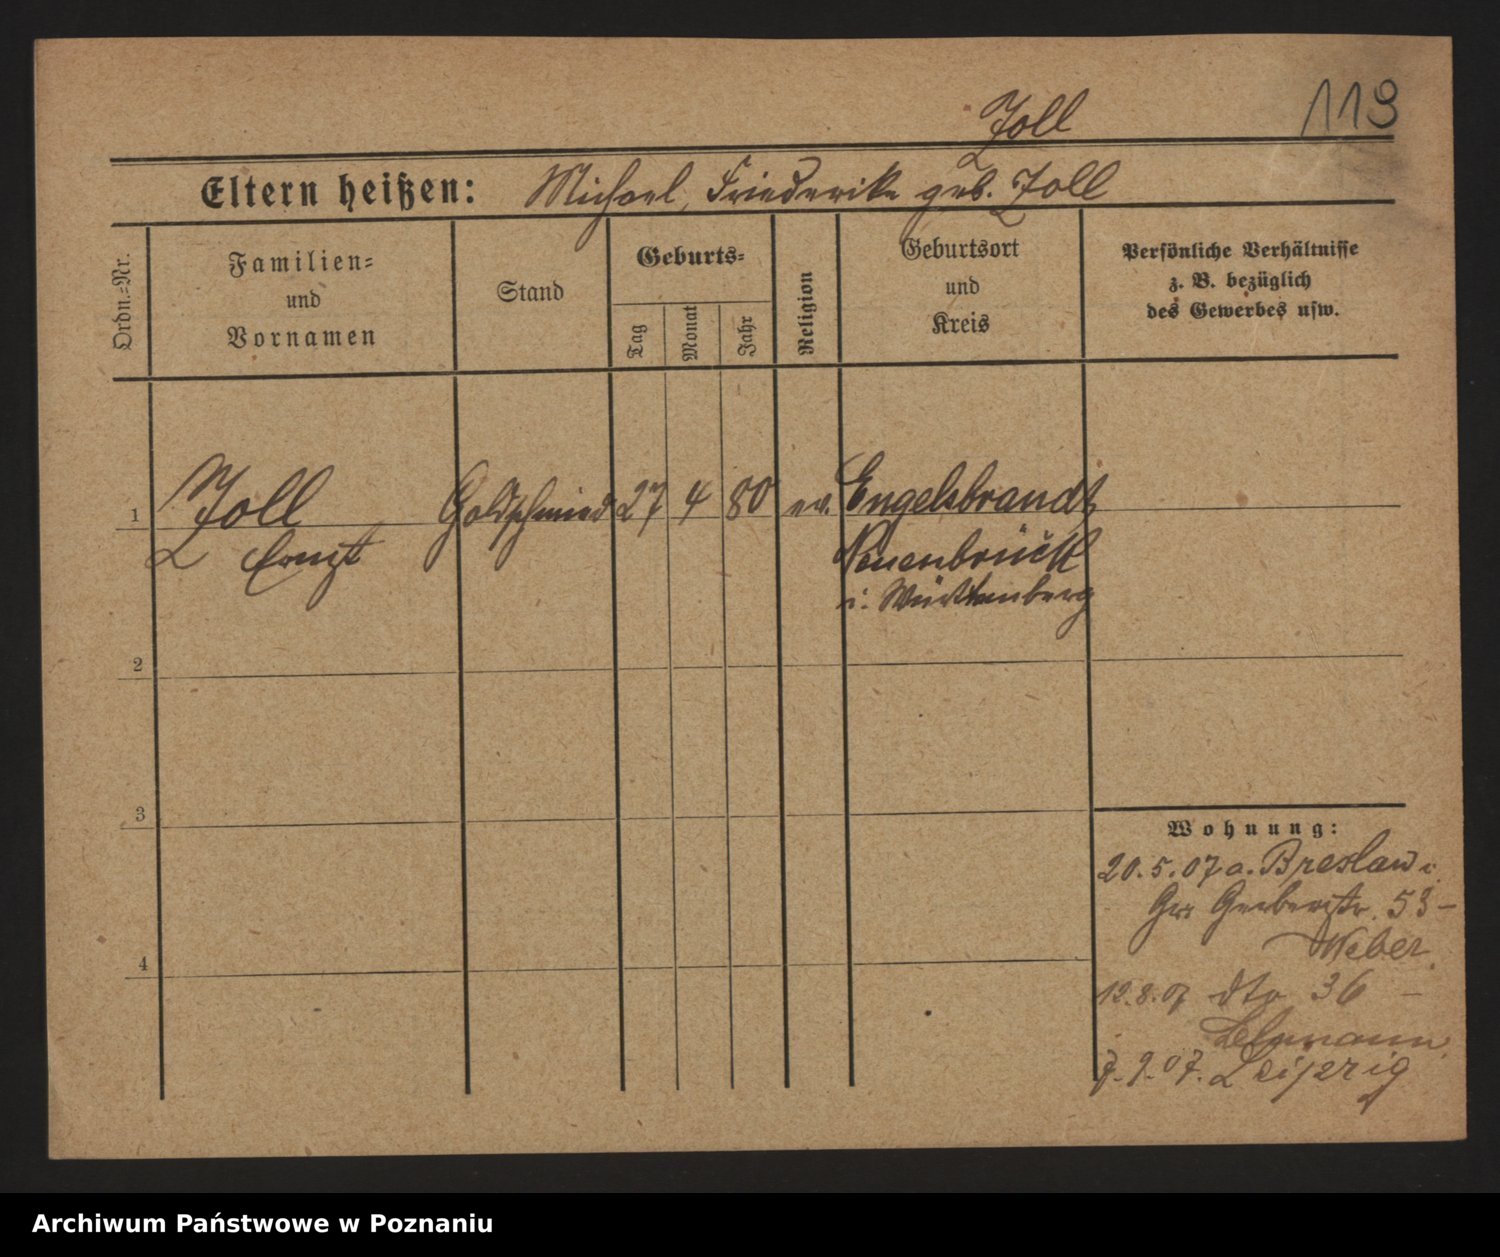 Zoll
113
Eltern heißen: Michael, Friederike geb. Zoll
Ordn.-Nr.
Familien-
und
Vornamen
Stand
Geburts-
Tag
Monat
Jahr
Religion
Geburtsort
und
Kreis
Persönliche Verhältnisse
z. B. bezüglich
des Gewerbes usw.
1
Zoll
Ernst
Goldschmied
27
4
80
ev.
Engelsbrandt
Neuenbrückl
i. Württemberg
2
3
4
Wohnung:
20.5.07 a. Breslau i.
Gr. Gerberstr. 53 –
Weber
12.8.07 dto 36 –
Lehmann
7.9.07. Leipzig
Archiwum Państwowe w Poznaniu